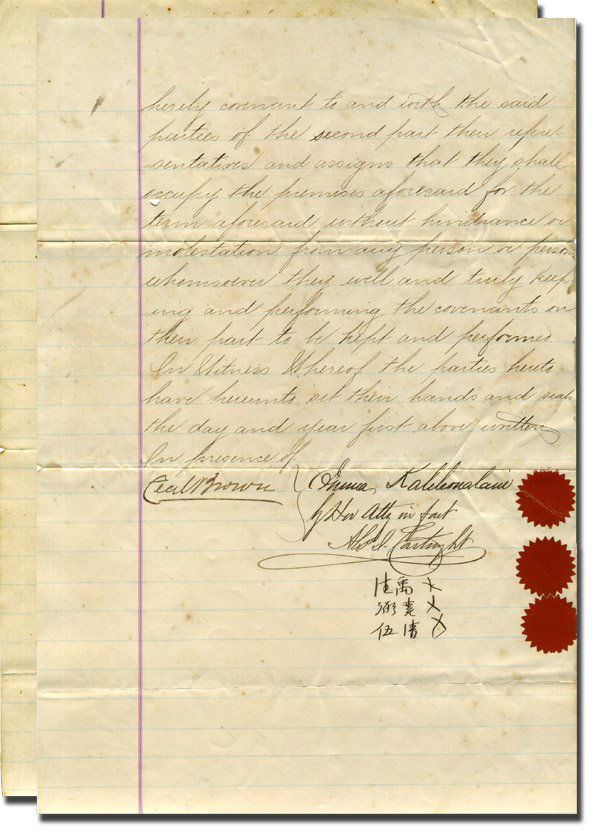 hereby covenant to and with the said
parties of the second part their repre-
sentatives and assigns that they shall
occupy the premises aforesaid for the
term aforesaid without hindrance or
molestation from any person or person
whomsoever they well and truly keep
ing and performing the covenants on
their part to be kept and performed
In Witness Whereof the parties hereto
have hereunto set their hands and seals
the day and year first above written
In presence of
Cecil Brown
Emma Kaleleonalani
by Her Atty in fact
Alex J. Cartwright
禹 X
X
伍 X